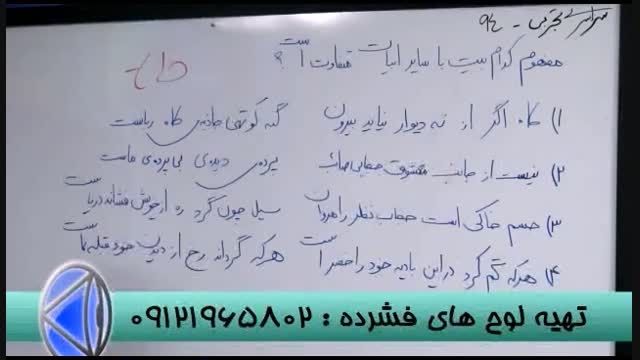 سراسری تجربی - ۹۴
مفهوم کدام بیت با سایر ابیات متفاوت است ؟
۱) کاه اگر از ته دیوار نیاید بیرون گنه کوتهی جاذبه‌ی کاه رباست
۲) نیست از جانب معشوق حجابی صائب پرده‌ی دیده‌ی بی پرده‌ی ماست
۳) جسم خاکی است حجاب نظر راهروان سیل چون گرد ره از خویش فشاند دریاست
۴) هرکه گم کرد در این بادیه خود را خضر است هرکه گرداند رخ از دیدن خود قبله‌نماست
تهیه لوح های فشرده : ۰۹۱۲۱۹۶۵۸۰۲